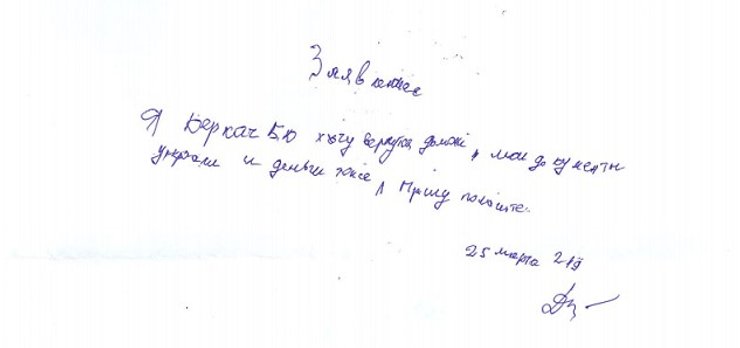 Заявление
Я Беркач Б.Ю хочу вернутся домой, мои документы
украли и деньги тоже, Прошу помогите.
25 марта